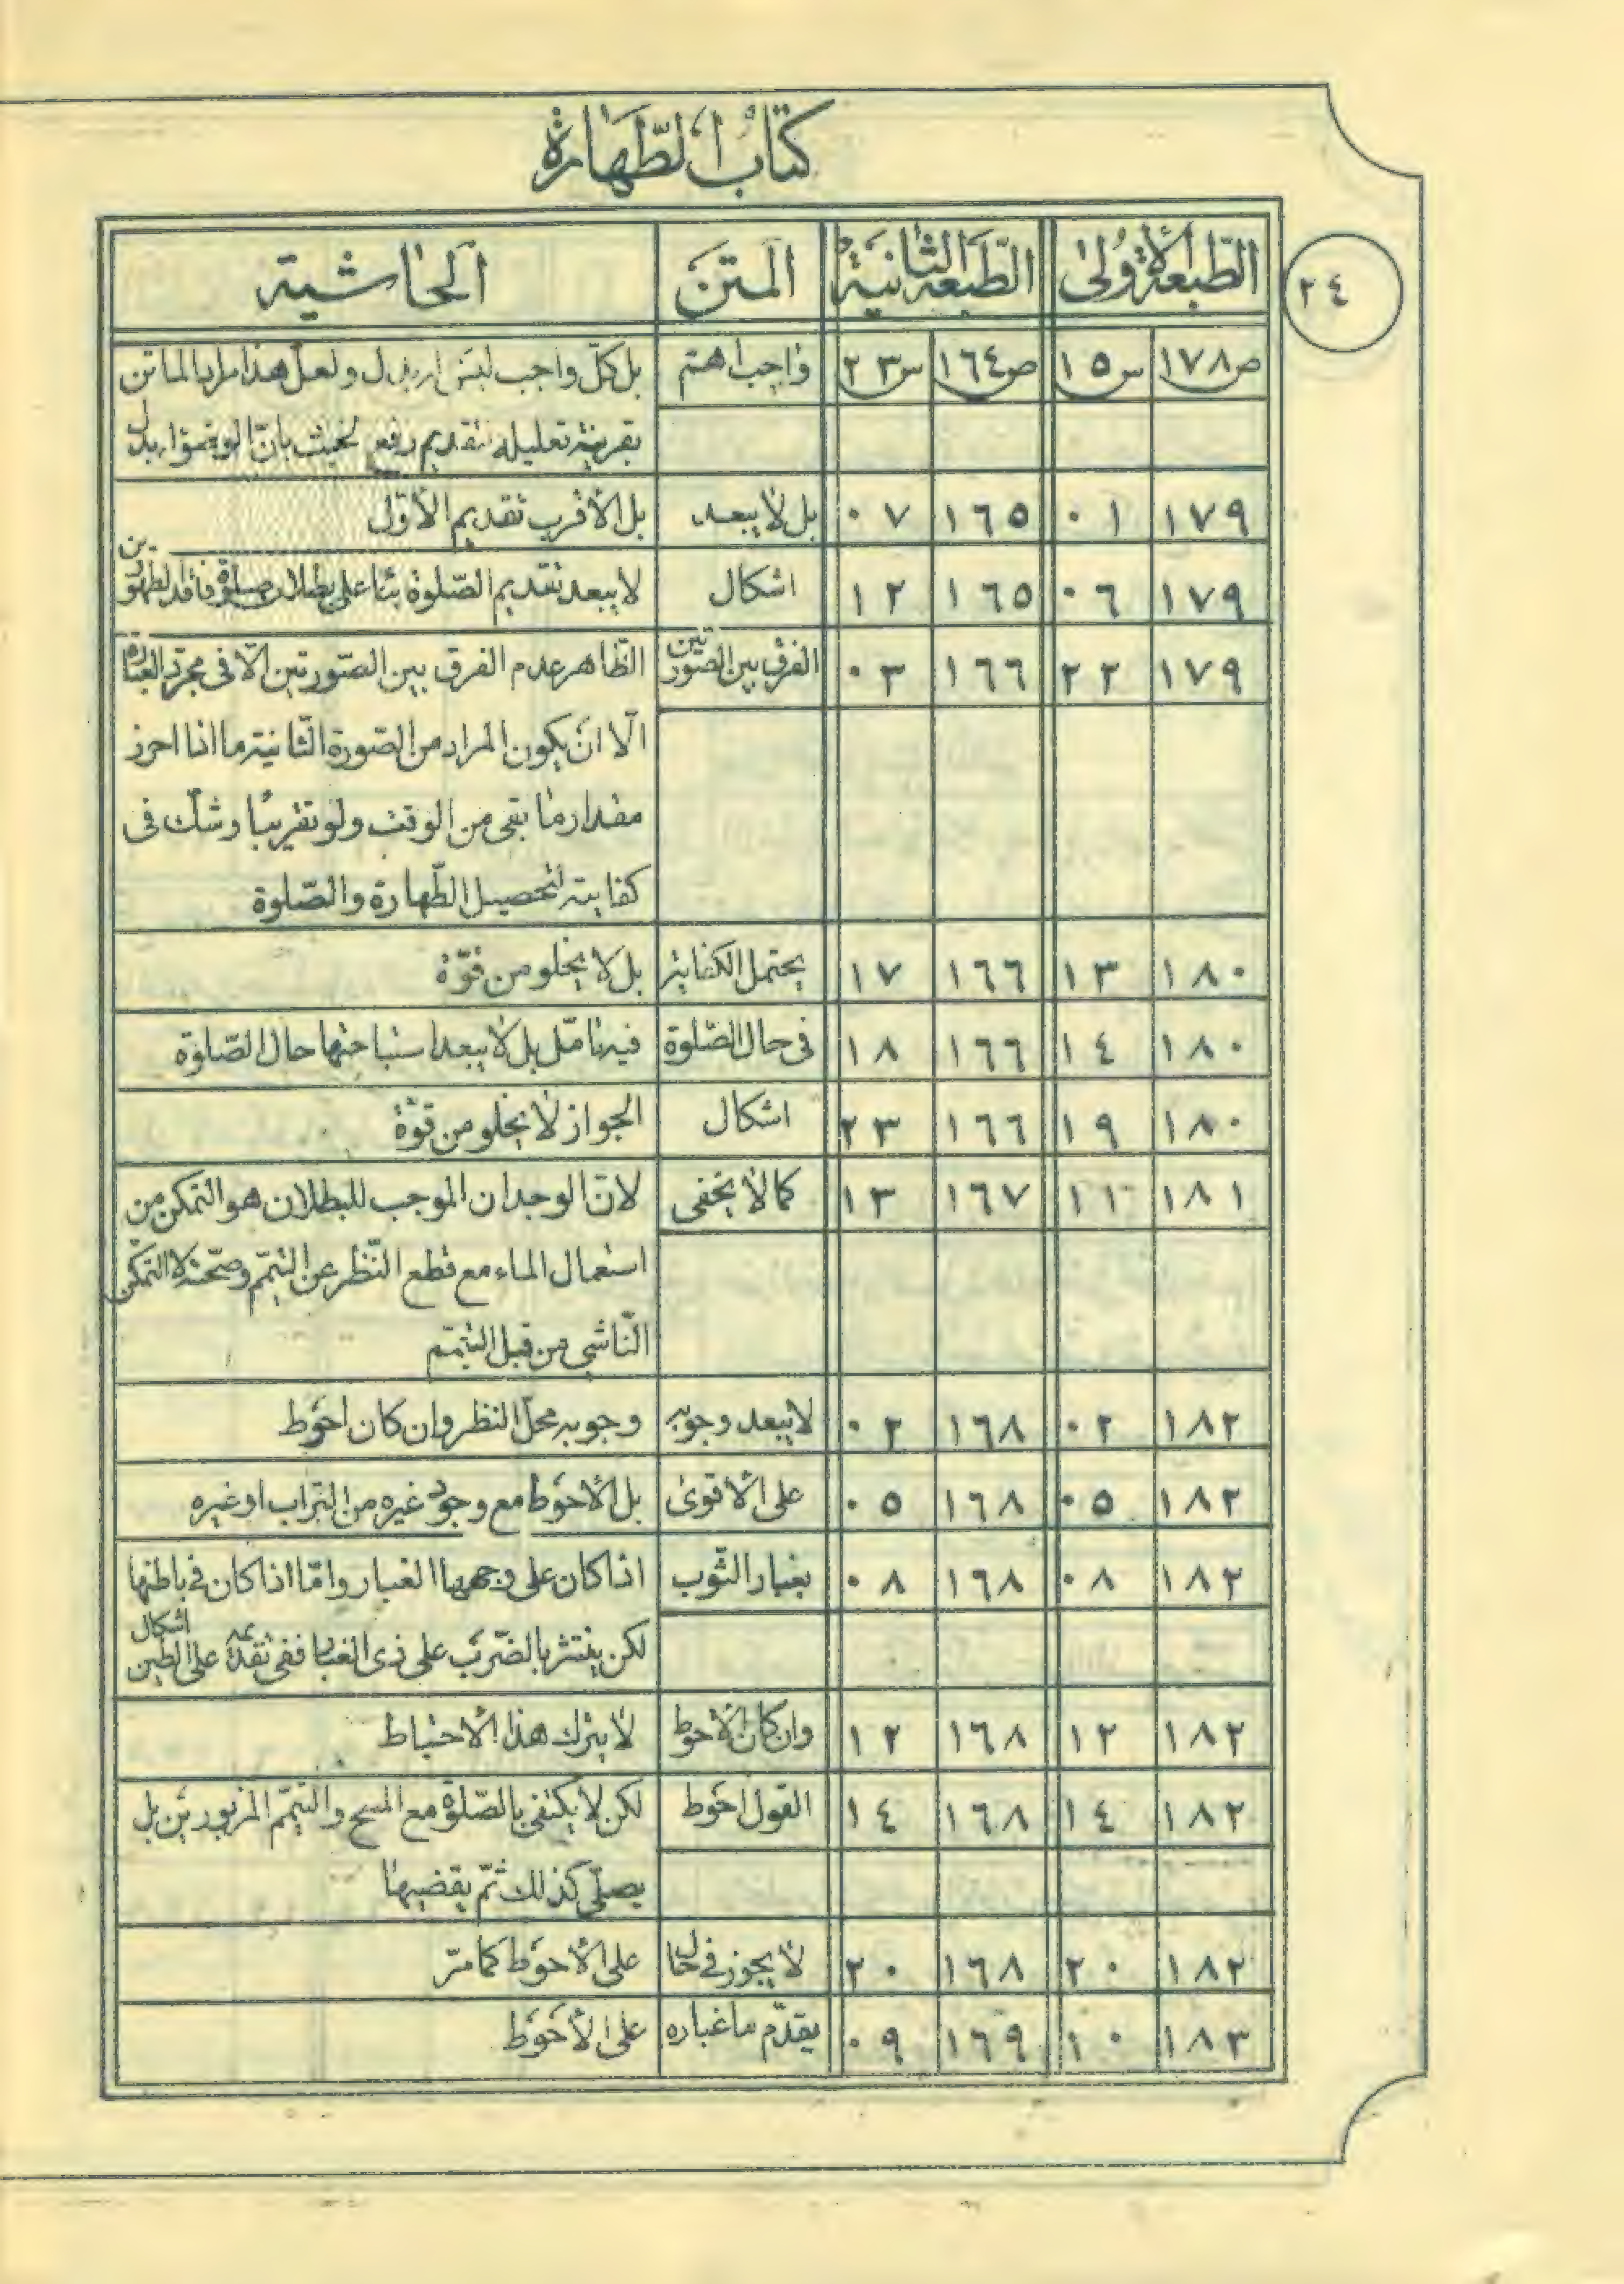 كتاب الطّهارة
٢٤
الطّبعة الأولى الطّبعة الثّانية المتن الحاشية
ص١٧٨ س١٥ ص١٦٤ س٢٣ واجب اهمّ بل كلّ واجب ليس له بدل ولعلّ هذا مراد الماتن
بقرينة تعليله تقديم رفع الخبث بانّ الوضوء له بدل
١٧٩ ٠١ ١٦٥ ٠٧ بل لا يبعد بل الأقرب تقديم الأوّل
١٧٩ ٠٦ ١٦٥ ١٢ اشكال لا يبعد تقديم الصّلوة بناء على بطلان صلوة فاقد الطهورين
١٧٩ ٢٢ ١٦٦ ٠٣ الفرق بين الصّورتين الظّاهر عدم الفرق بين الصّورتين الّا في مجرّد العبارة
الّا ان يكون المراد من الصّورة الثّانية ما اذا احرز
مقدار ما بقى من الوقت ولو تقريبًا وشكّ في
كفايته لتحصيل الطّهارة والصّلوة
١٨٠ ١٣ ١٦٦ ١٧ يحتمل الكفاية بل لا يخلو من قوّة
١٨٠ ١٤ ١٦٦ ١٨ في حال الصّلوة فيه تامّل بل لا يبعد استباحتها حال الصّلوة
١٨٠ ١٩ ١٦٦ ٢٣ اشكال الجواز لا يخلو من قوّة
١٨١ ١١ ١٦٧ ١٣ كما لا يخفى لانّ الوجدان الموجب للبطلان هو التمكن من
استعمال الماء مع قطع النّظر عن التيمّم وصحّته لا التمكّن
النّاشي من قبل التيمّم
١٨٢ ٠٢ ١٦٨ ٠٢ لا يبعد وجوبه وجوبه محلّ النظر وان كان احوط
١٨٢ ٠٥ ١٦٨ ٠٥ على الأقوى بل الأحوط مع وجود غيره من التراب او غيره
١٨٢ ٠٨ ١٦٨ ٠٨ بغبار الثّوب اذا كان على وجهها الغبار وامّا اذا كان في باطنها
لكن ينتثر بالضّرب على ذى الغبار ففى تقدّمه على الطين اشكال
١٨٢ ١٢ ١٦٨ ١٢ وان كان الأحوط لا يترك هذا الاحتياط
١٨٢ ١٤ ١٦٨ ١٤ القول احوط لكن لا يكتفى بالصّلوة مع المسح والتيمّم المزبورين بل
يصلّي كذلك ثمّ يقضيها
١٨٢ ٢٠ ١٦٨ ٢٠ لا يجوز في حال على الأحوط كما مرّ
١٨٣ ١٠ ١٦٩ ٠٩ يقدّم ما غباره على الأحوط